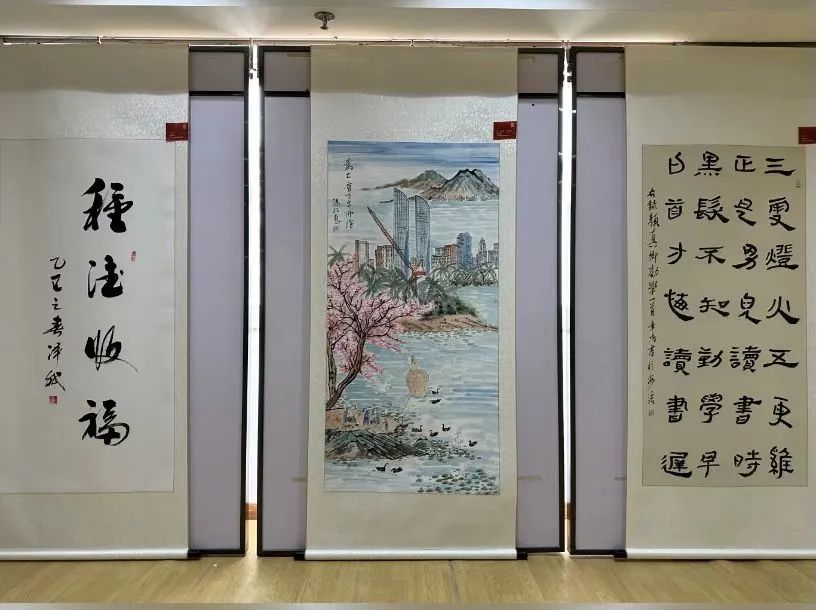 種德收福
乙巳之春
三更燈火五更雞
正是男兒讀書時
黑髮不知勤學早
白首才悔讀書遲
右錄顏真卿勸學一首